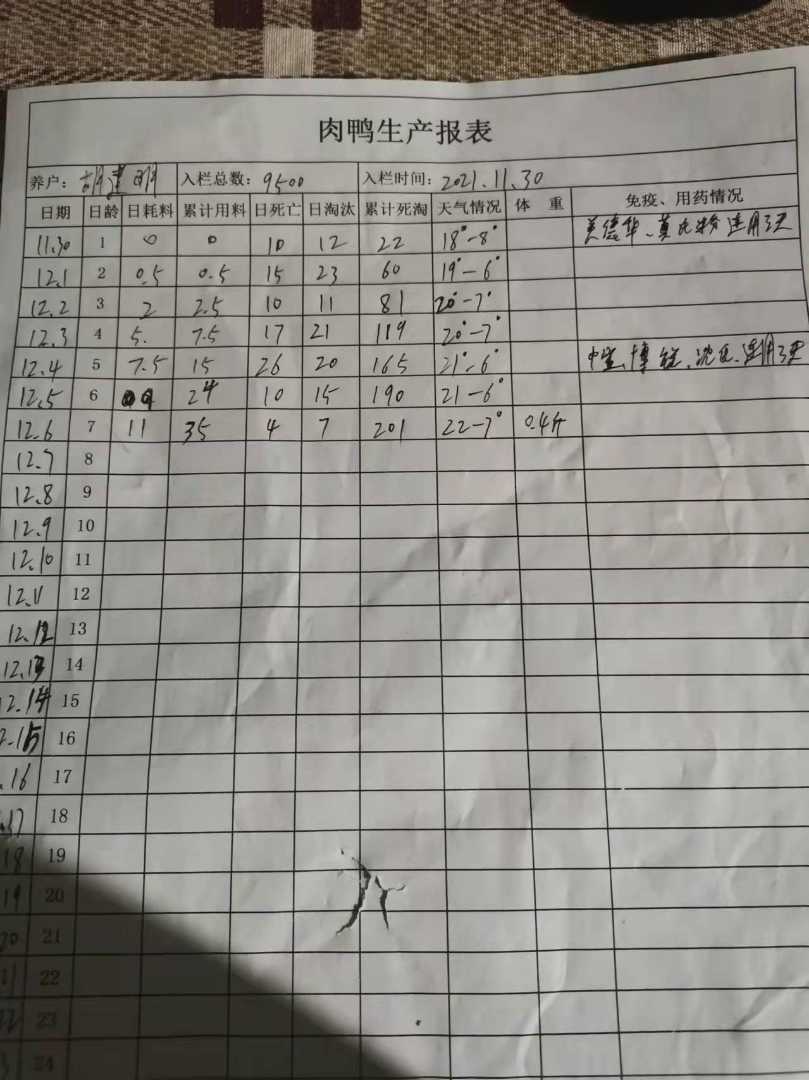 肉鸭生产报表
养户：胡建明 入栏总数：9500 入栏时间：2021.11.30
日期 日龄 日耗料 累计用料 日死亡 日淘汰 累计死淘 天气情况 体 重 免疫、用药情况
11.30 1 0 0 10 12 22 18°-8° 连用3天
12.1 2 0.5 0.5 15 23 60 19°-6°
12.2 3 2 2.5 10 11 81 20°-7°
12.3 4 5. 7.5 17 21 119 20°-7°
12.4 5 7.5 15 26 20 165 21°-6° 连用3天
12.5 6 24 10 15 190 21-6°
12.6 7 11 35 4 7 201 22-7° 0.4斤
12.7 8
12.8 9
12.9 10
12.10 11
12.11 12
12.12 13
12.13 14
12.14 15
2.15 16
.16 17
.17 18
18 19
19 20
20 21
22
22 23
24